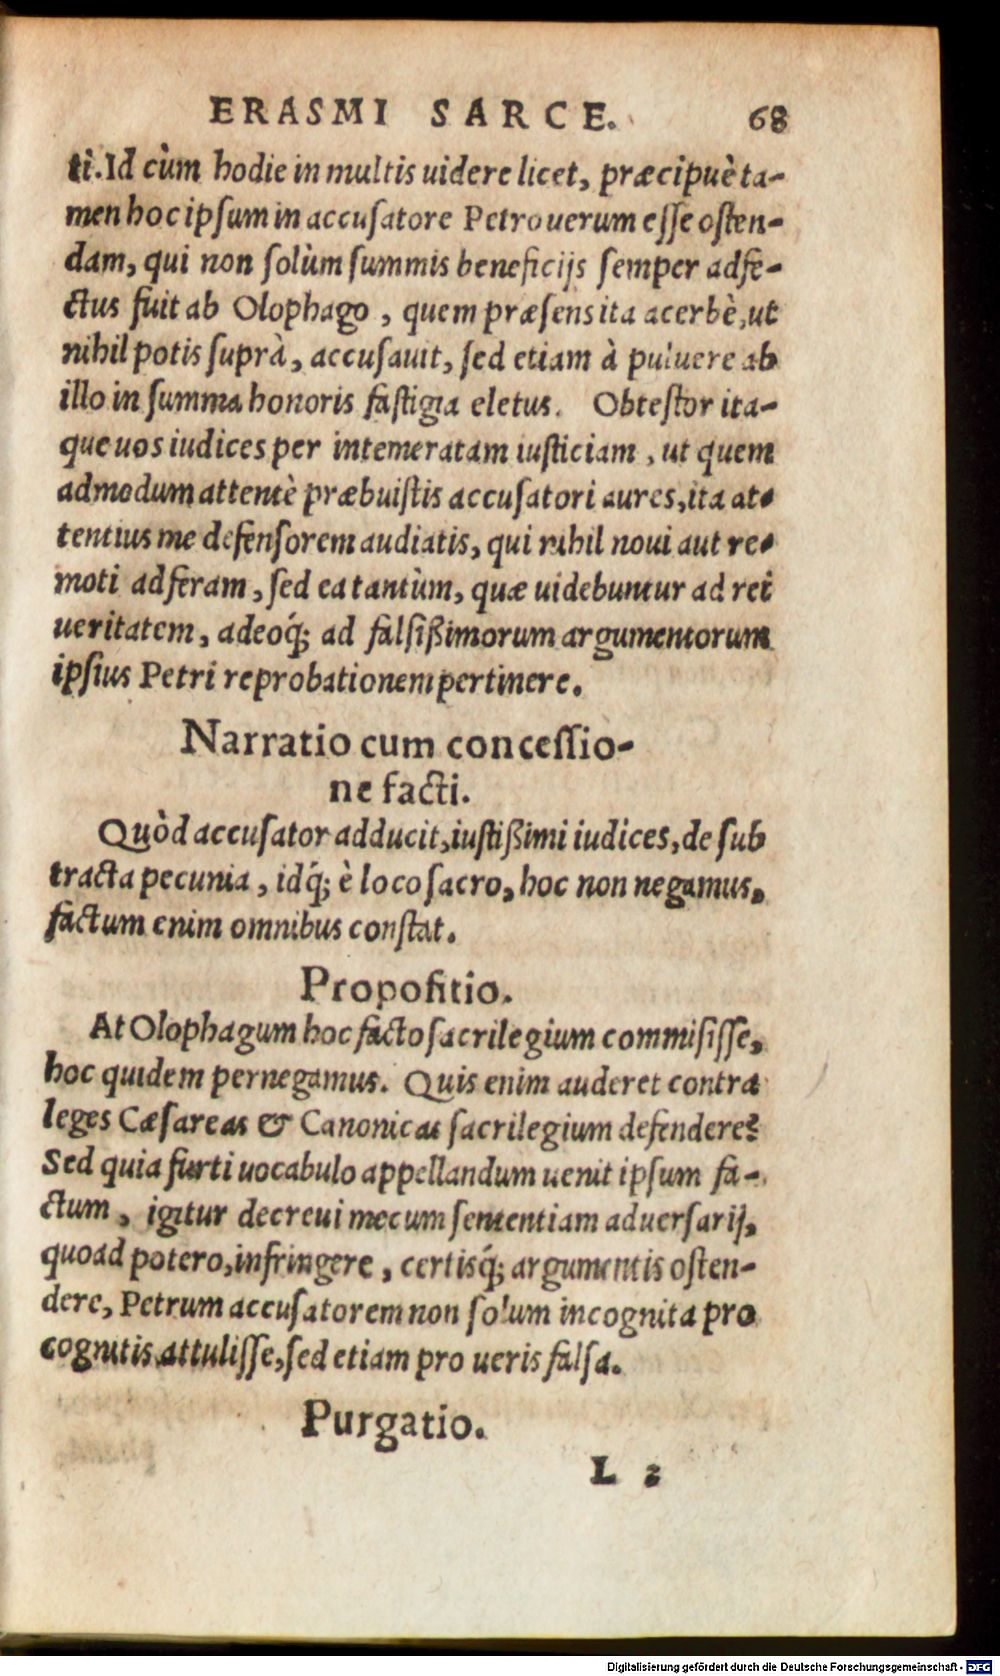 ERASMI SARCE. 68
ti. Id cùm hodie in multis uidere licet, præcipuè ta-
men hoc ipſum in accuſatore Petro uerum eſſe oſten-
dam, qui non ſolùm ſummis beneficijs ſemper adfe-
ctus fuit ab Olophago, quem præſens ita acerbè, ut
nihil potis ſuprà, accuſauit, ſed etiam à puluere ab
illo in ſumma honoris faſtigia eletus. Obteſtor ita-
que uos iudices per intemeratam iuſticiam, ut quem
admodum attentè præbuiſtis accuſatori aures, ita at-
tentius me defenſorem audiatis, qui nihil noui aut re-
moti adferam, ſed ea tantùm, quæ uidebuntur ad rei
ueritatem, adeoq́; ad falſißimorum argumentorum
ipſius Petri reprobationem pertinere.
Narratio cum conceſſio-
ne facti.
Quòd accuſator adducit, iuſtißimi iudices, de ſub
tracta pecunia, idq́; è loco ſacro, hoc non negamus,
factum enim omnibus conſtat.
Propoſitio.
At Olophagum hoc facto ſacrilegium commiſiſſe,
hoc quidem pernegamus. Quis enim auderet contra
leges Cæſareas & Canonicas ſacrilegium defendere?
Sed quia furti uocabulo appellandum uenit ipſum fa-
ctum, igitur decreui mecum ſententiam aduerſarij,
quoad potero, infringere, certisq́; argumentis oſten-
dere, Petrum accuſatorem non ſolum incognita pro
cognitis attuliſſe, ſed etiam pro ueris falſa.
Purgatio.
L 2
Digitalisierung gefördert durch die Deutsche Forschungsgemeinschaft - DFG